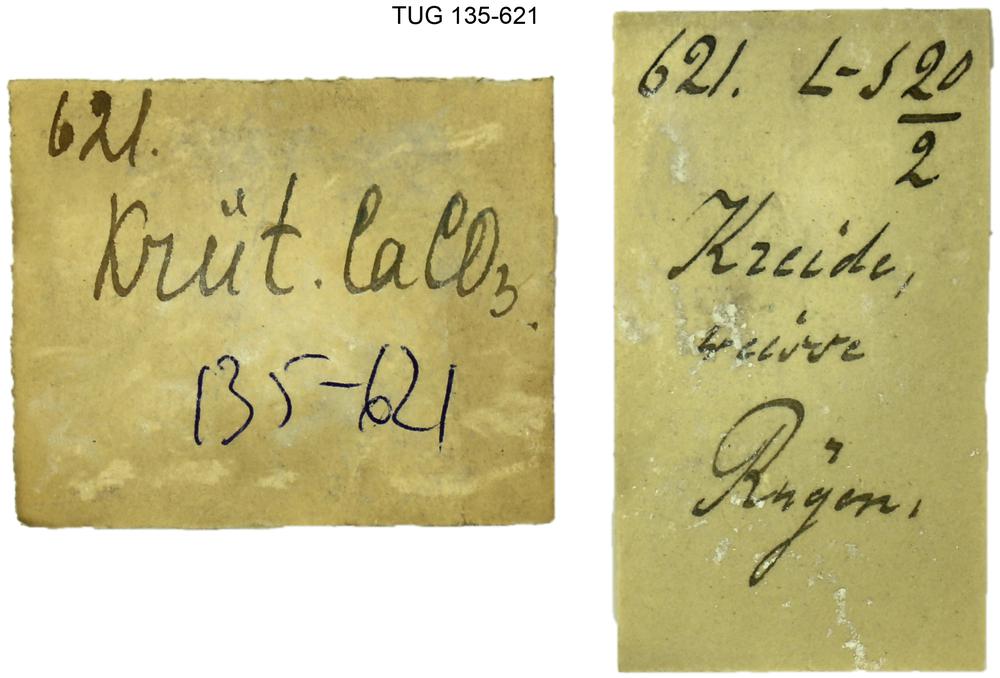 TUG 135-621
621.
Krüt. CaCO3.
135-621
621. L-S 20
2
Kreide,
weisse
Rügen.